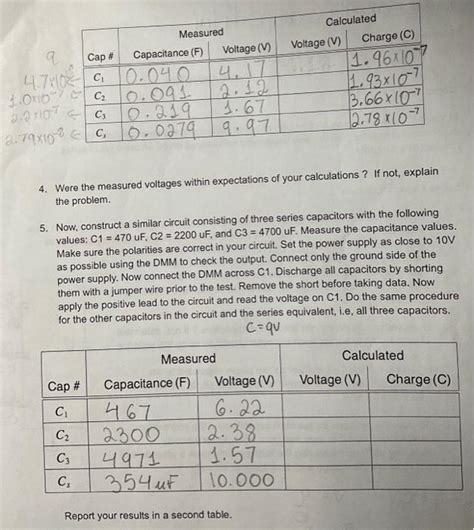 Measured Calculated
q Cap # Capacitance (F) Voltage (V) Voltage (V) Charge (C)
4.7x10⁻⁸ ← C₁ 0.040 4.17 1.96x10⁻⁷
1.0x10⁻⁷ ← C₂ 0.091 2.12 1.93x10⁻⁷
2.2x10⁻⁷ ← C₃ 0.219 1.67 3.66x10⁻⁷
2.79x10⁻⁸ ← Cₛ 0.0279 9.97 2.78x10⁻⁷
4. Were the measured voltages within expectations of your calculations ? If not, explain
the problem.
5. Now, construct a similar circuit consisting of three series capacitors with the following
values: C1 = 470 uF, C2 = 2200 uF, and C3 = 4700 uF. Measure the capacitance values.
Make sure the polarities are correct in your circuit. Set the power supply as close to 10V
as possible using the DMM to check the output. Connect only the ground side of the
power supply. Now connect the DMM across C1. Discharge all capacitors by shorting
them with a jumper wire prior to the test. Remove the short before taking data. Now
apply the positive lead to the circuit and read the voltage on C1. Do the same procedure
for the other capacitors in the circuit and the series equivalent, i.e, all three capacitors.
C=qv
Measured Calculated
Cap # Capacitance (F) Voltage (V) Voltage (V) Charge (C)
C₁ 467 6.22
C₂ 2300 2.38
C₃ 4971 1.57
Cₛ 354uF 10.000
Report your results in a second table.